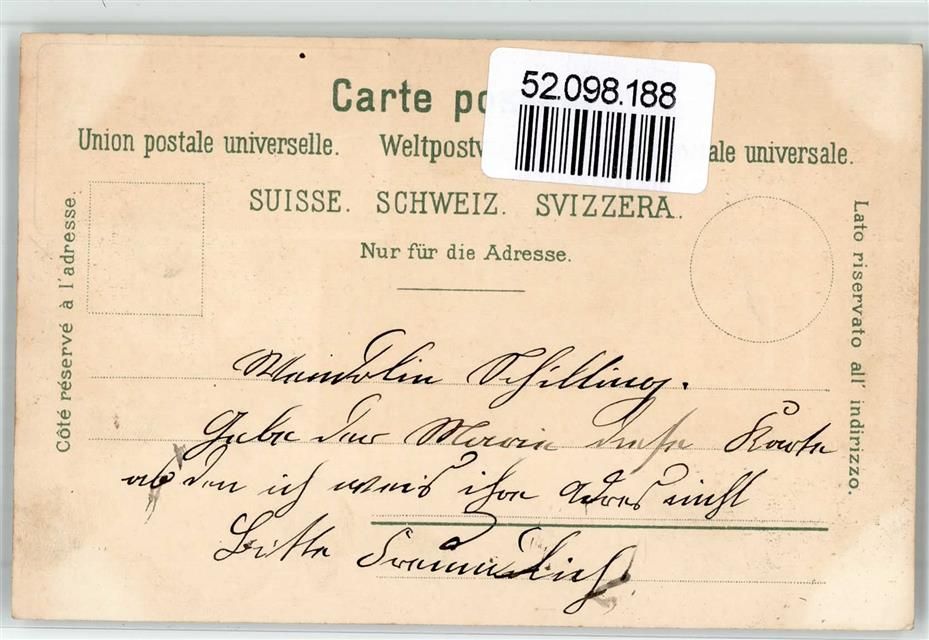 52.098.188
Carte pos
Union postale universelle. Weltpostv ale universale.
SUISSE. SCHWEIZ. SVIZZERA.
Nur für die Adresse.
Côté réservé à l'adresse.
Lato riservato all' indirizzo.
Wendolin Schilling.
Gebe der Marie diese Karte
ab den ich weis ihre Adres nicht
Bitte Freundlich